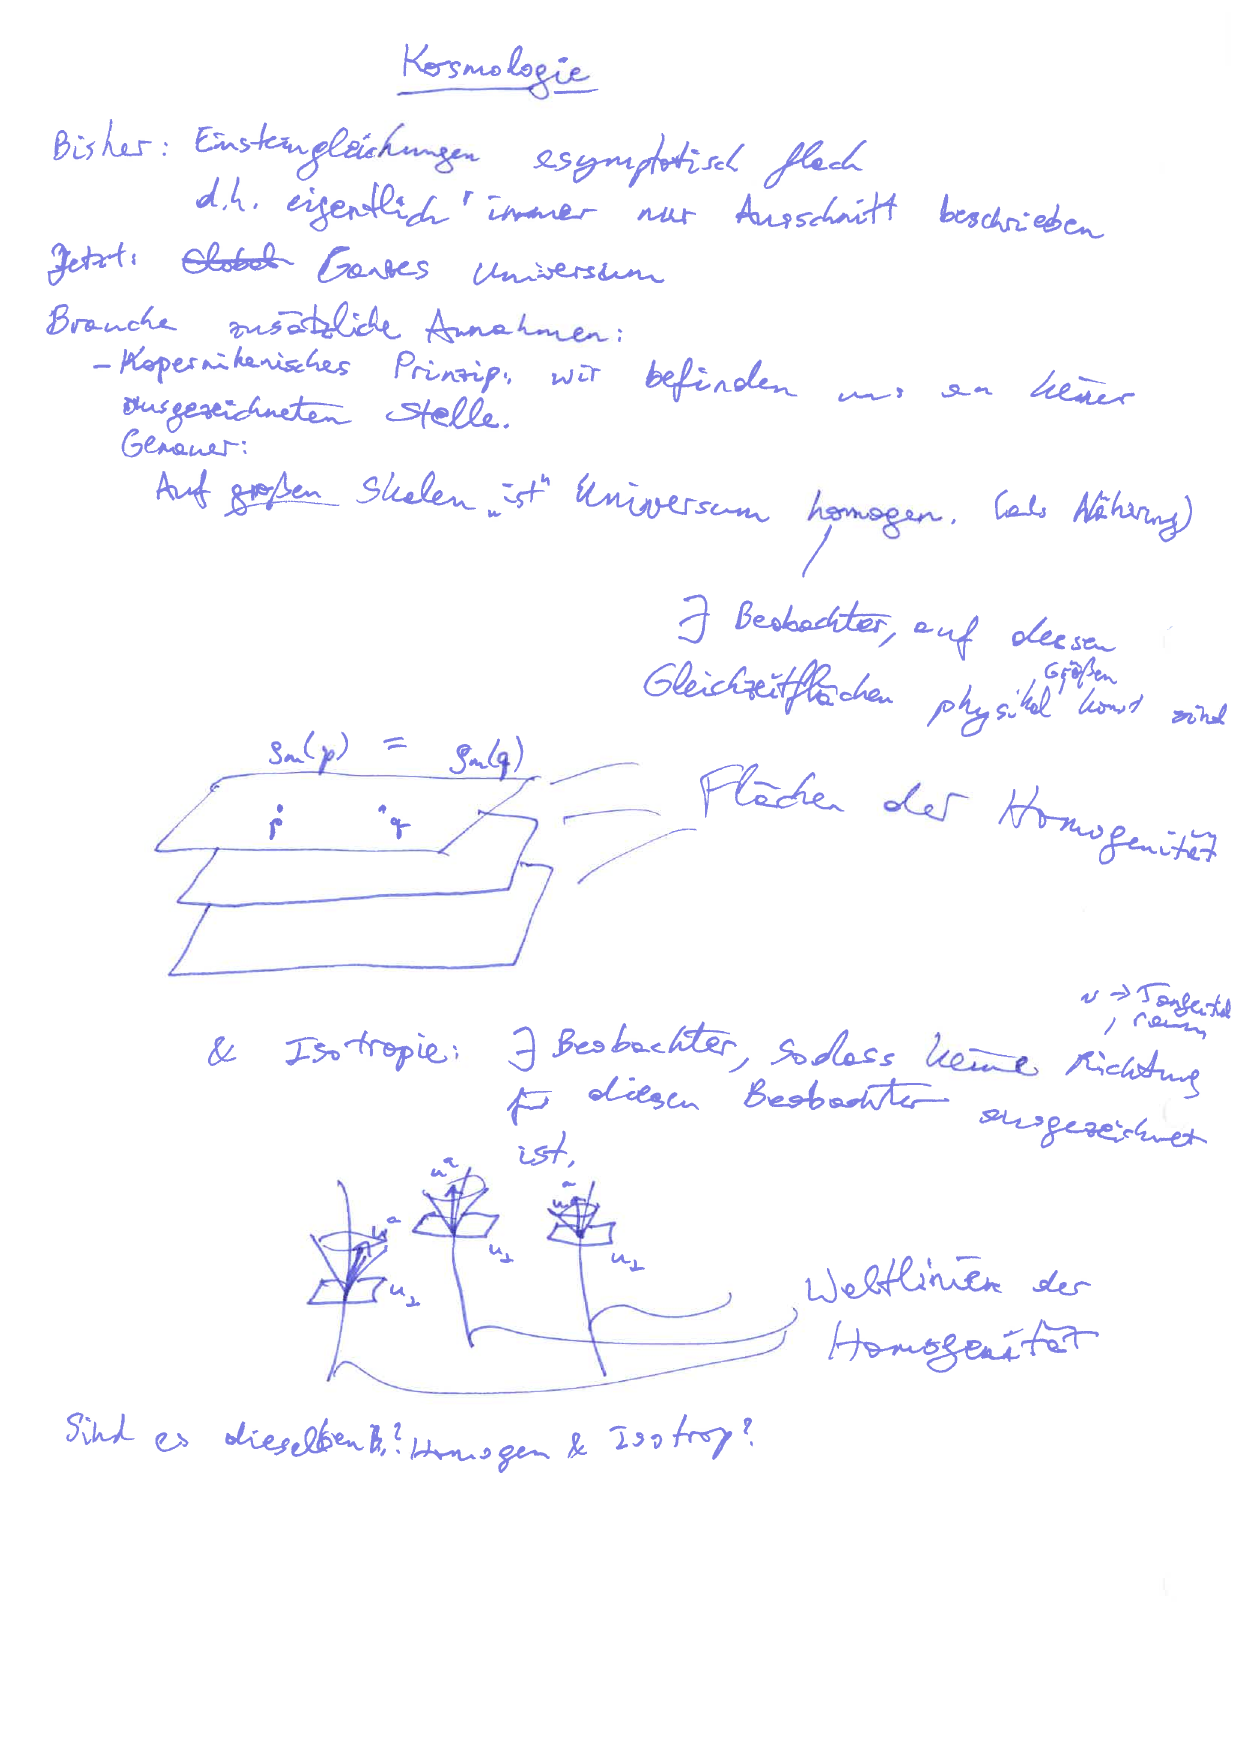 Kosmologie
Bisher: Einsteingleichungen asymptotisch flach
d.h. eigentlich immer nur Ausschnitt beschrieben
Jetzt: Global Ganzes Universum
Brauche zusätzliche Annahmen:
- Kopernikanisches Prinzip: wir befinden uns an keiner
ausgezeichneten Stelle.
Genauer:
Auf großen Skalen „ist" Universum homogen. (als Näherung)
∃ Beobachter, auf dessen
Größen
Gleichzeitflächen physikal. konst sind
ρm(p) = ρm(q)
p q
Flächen der Homogenität
→ Tangential
raum
& Isotropie: ∃ Beobachter, sodass keine Richtung
für diesen Beobachter ausgezeichnet
ist.
uᵃ uᵃ uᵃ
u⊥ u⊥ u⊥
Weltlinien der
Homogenität
Sind es dieselben B.? Homogen & Isotrop?